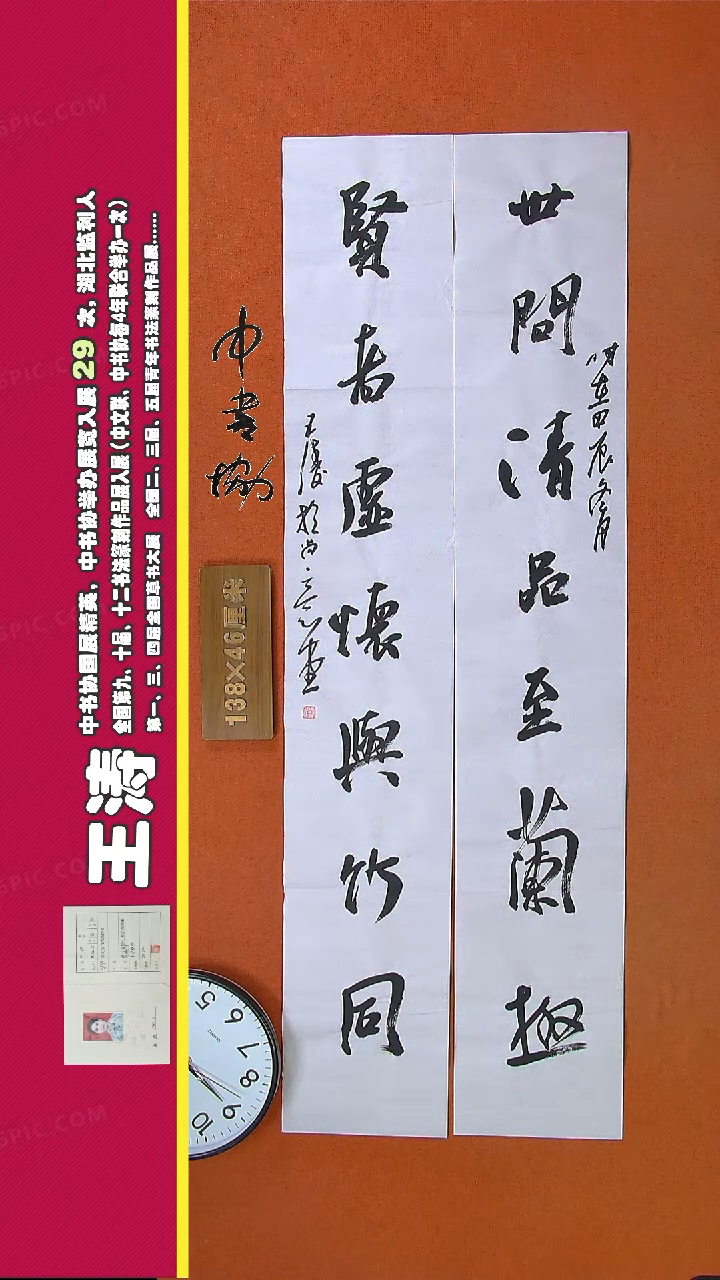 世間清品至蘭極
時在甲辰冬月
賢者虛懷與竹同
王濤於尚
中書協
138×46厘米
王涛
中书协国展精英，中书协举办展览入展 29 次，湖北监利人
全国第九、十届、十二书法篆刻作品展入展（中文联、中书协每4年联合举办一次）
第一、三、四届全国草书大展 全国二、三届、五届青年书法篆刻作品展……
5
6
7
8
9
10